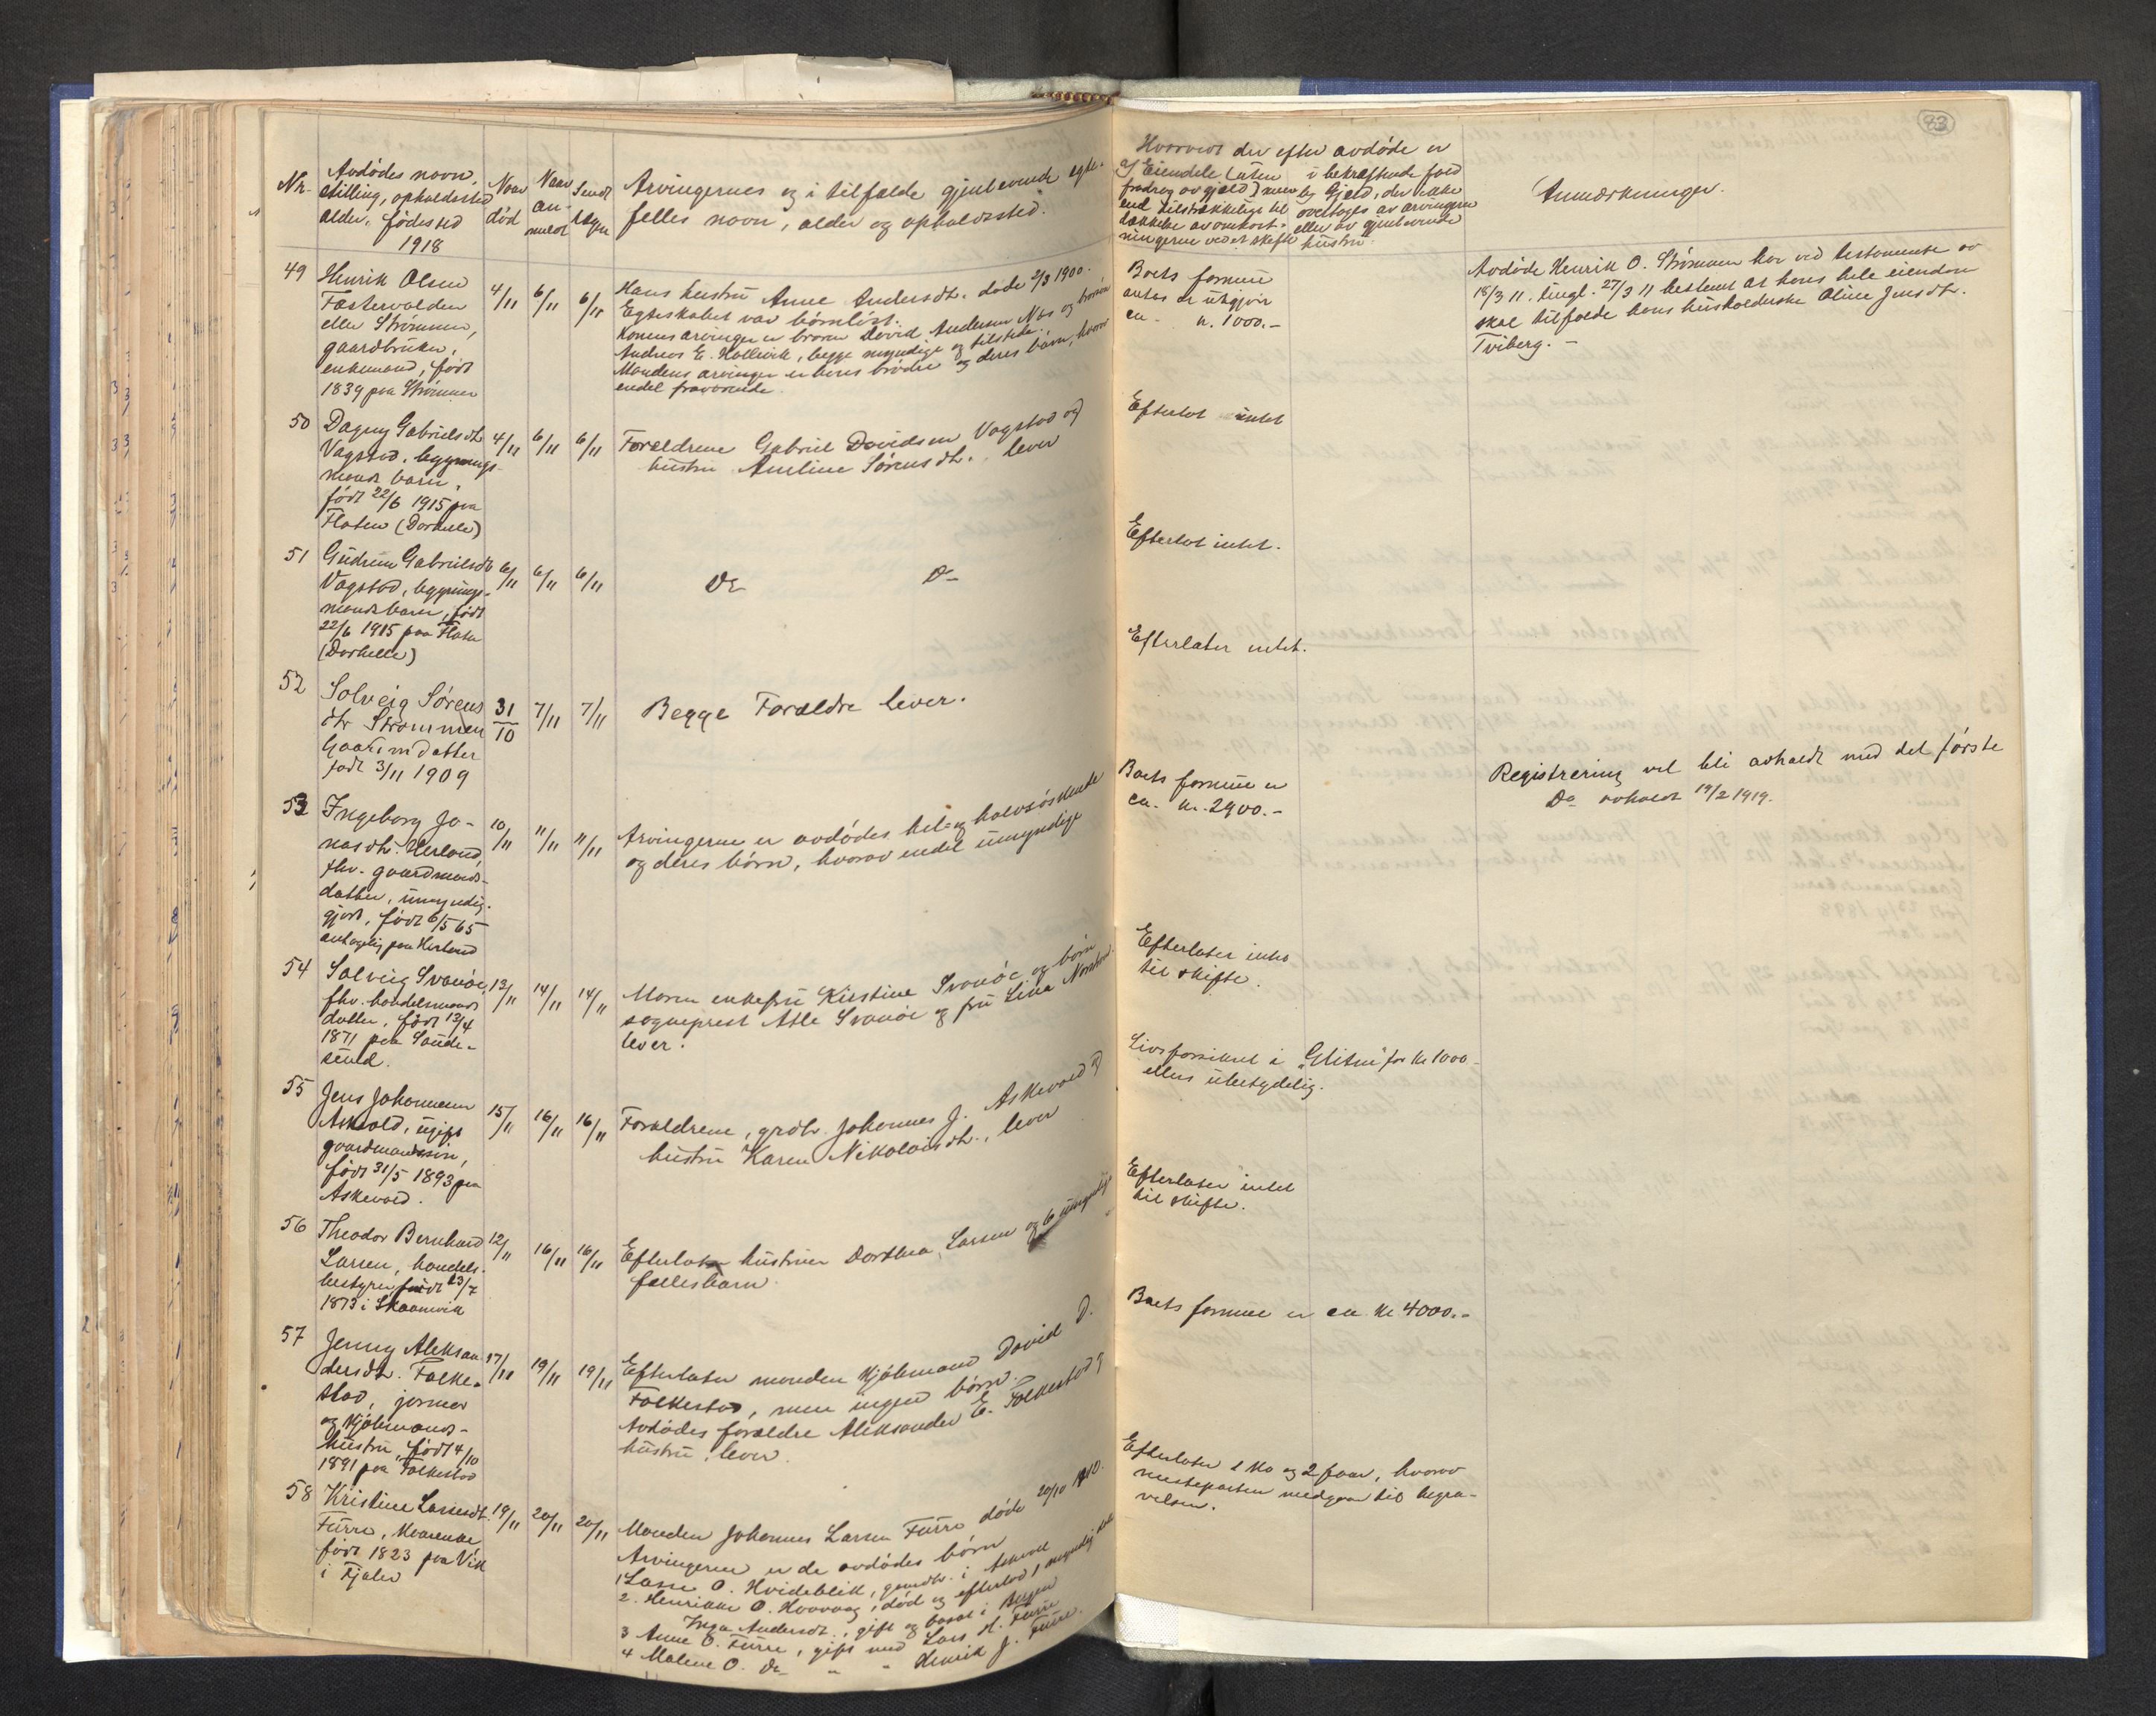 83
Nr.
Avdødes navn,
stilling, opholdssted
alder, fødested
1918
Naar
død
Naar
an-
meldt
Sendt
Arvingernes og i tilfælde gjenlevende egte-
felles navn, alder og opholdssted.
Hvorvidt der efter avdøde er
a) Eiendele (uten
fradrag av gjæld) mere
end tilstrækkelige til
dækkelse av omkost-
ningerne ved et skifte
i bekræftende fald
b) Gjæld, der ikke
overtages av arvingerne
eller av gjenlevende
hustru.
Anmerkninger.
49
Henrik Olsen
eller Strømmen,
gaardbruker,
enkemand, født
1839 paa Strømmen
4/11 6/11 6/11
Hans hustru Anne Andersdtr. døde 2/3 1900.
Egteskabet var barnløst.
Konens arvinger er broren David Andersen Nes og broren
Andreas E. Hallevik, begge myndige og tilstede.
Mandens arvinger er hans brødre og deres børn, hvorav
endel fraværende.
Boets formue
antas at utgjøre
ca. kr. 1000.-
Avdøde Henrik O. Strømmen har ved testamente av
18/3 11, tingl. 27/3 11 bestemt at hans hele eiendom
skal tilfalde hans husholderske Oline Jensdtr.
Tviberg. -
50
Dagny Gabrielsdtr
Vagstad, bygnings-
mands barn,
født 22/6 1915 paa
Flaten
4/11 6/11 6/11
Forældrene Gabriel Davidsen Vagstad og
hustru Sørensdtr. lever
Efterlot intet
51
Gudrun Gabrielsdtr
Vagstad, bygnings-
mands barn, født
22/6 1915 paa Flaten
6/11 6/11 6/11
Do Do
Efterlot intet.
52
Solveig Sørens
dtr Strømmen
Gaardm datter
født 3/11 1909
31/10 7/11 7/11
Begge Forældre lever.
Efterlater intet.
53
Ingeborg Jo-
nasdtr. Herland,
fhv. gaardmands-
datter, umyndig-
gjort, født 6/5 65
antagelig paa Herland
10/11 11/11 11/11
Arvingerne er avdødes hel- og halvsøskende
og deres børn, hvorav endel umyndige
Boets formue er
ca. kr. 2900.-
Registrering vil bli avholdt med det første
Do avholdt 19/2 1919.
54
Solveig Svanøe,
fhv. handelsmands
datter, født 13/4
1871 paa Saude-
sund.
13/11 14/11 14/11
Moren enkefru Kirstine Svanøe og børn
sogneprest Atle Svanøe og fru Lina
lever.
Efterlater intet
til skifte.
55
Jens Johannesen
Askvold, ugift
gaardmandssøn,
født 31/5 1893 paa
Askevold.
15/11 16/11 16/11
Forældrene, grdbr. Johannes J. Askevold og
hustru Karen Nikolaisdtr., lever
Livsforsikret i "Glitne" for kr 1000
ellers ubetydelig.
56
Theodor Bernhard
Larsen, handels-
bestyrer, født 23/7
1873 i Skaanevik
12/11 16/11 16/11
Efterlater hustruen Dorthea Larsen og 6 umyndige
fællesbarn.
Efterlater intet
til skifte.
57
Jenny Aleksan
dersdtr. Folke-
stad, jormor
og Kjøbmands-
hustru, født 4/10
1891 paa Folkestad
17/11 19/11 19/11
Efterlater manden Kjøbmand David D.
Folkestad, men ingen børn.
Avdødes forældre Aleksander E. Folkestad og
hustru, lever.
Boets formue er ca. kr. 4000.-
58
Kristine Larsdtr.
Furre,
født 1823 paa Vik
i Fjaler
19/11 20/11 20/11
Manden Johannes Larsen Furre døde 20/10 1910.
Arvingerne er de avdødes børn
1 Lasse O. Hvideblik, gaardbr. i Askvoll
2. Henrikke O. død og efterlod 1 myndig
Inga Andersdt., gift og bosat i Bergen
3 Anne O. Furre, gift med Lars H. Furre
4 Malene O. Do " " Henrik J. Furre.
Efterlater 1 ko og 2 faar, hvorav
mesteparten medgaar til begra-
velsen.